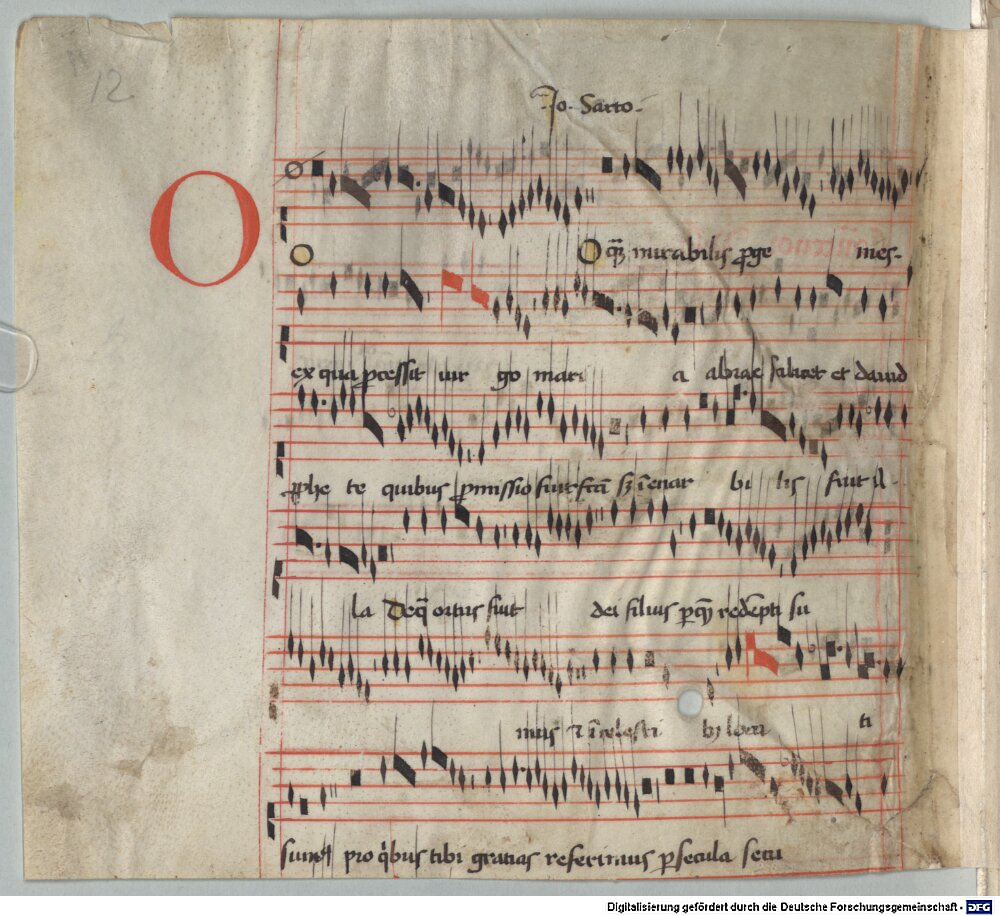 12
Jo. Sarto.
O
O O qꝫ mirabilis ꝓge nies.
ex qua ꝓcessit uir go mari a abrae scilicet et dauid
ꝓphe te quibus ꝓmissio fuit fcā sꝫ īenar bi lis fuit il-
la De q̄ ortus fuit dei filius ꝑ quē redēpti su
mus ti
sumꝰ pro qͥbus tibi gratias referimus ꝑ secula secu
Digitalisierung gefördert durch die Deutsche Forschungsgemeinschaft - DFG